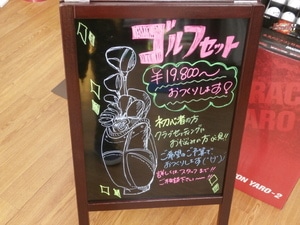 ゴルフセット
¥19,800〜
おつくりします?
初心者の方
クラブセッティングに
お悩みの方 必見!!
ご希望のご予算で
おつくりします(^^)
詳しくはスタッフまで!!
ご相談下さい
ION YARO-2